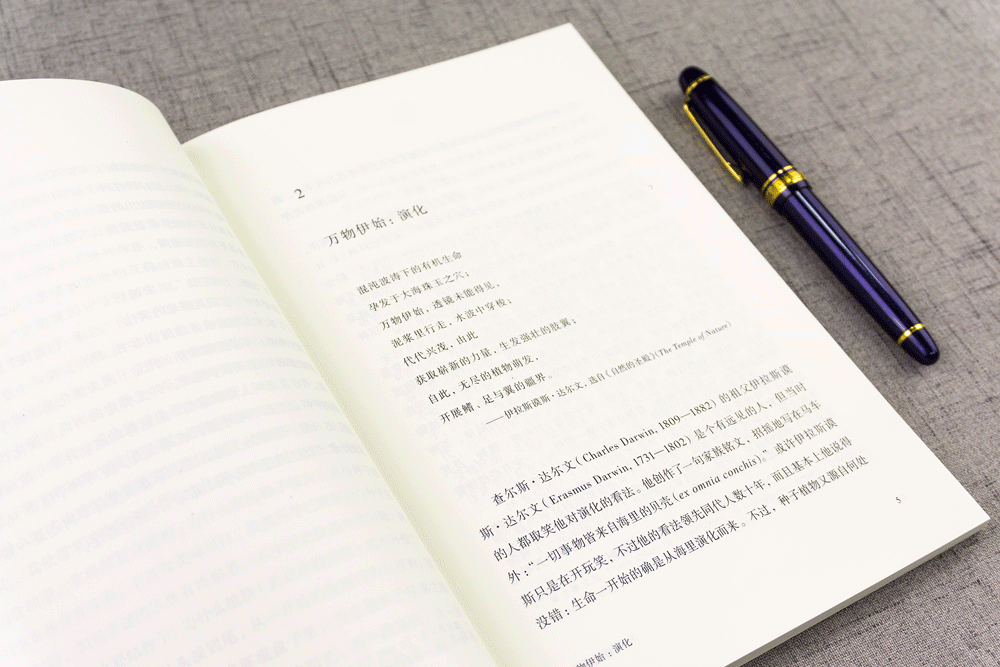 2
万物伊始：演化
混沌波涛下的有机生命
孕发于大海珠玉之穴；
万物伊始，透镜未能得见，
泥浆里行走，水波中穿梭；
代代兴茂，由此
获取崭新的力量，生发强壮的肢翼；
自此，无尽的植物萌发，
开展鳍、足与翼的疆界。
——伊拉斯谟斯·达尔文，选自《自然的圣殿》(The Temple of Nature)
查尔斯·达尔文（Charles Darwin, 1809—1882）的祖父伊拉斯谟
斯·达尔文（Erasmus Darwin, 1731—1802）是个有远见的人，但当时
的人都取笑他对演化的看法。他创作了一句家族铭文，招摇地写在马车
外：“一切事物皆来自海里的贝壳（ex omnia conchis）。”或许伊拉斯谟
斯只是在开玩笑，不过他的看法领先同代人数十年，而且基本上他说得
没错：生命一开始的确是从海里演化而来。不过，种子植物又源自何处
5
物伊始：演化